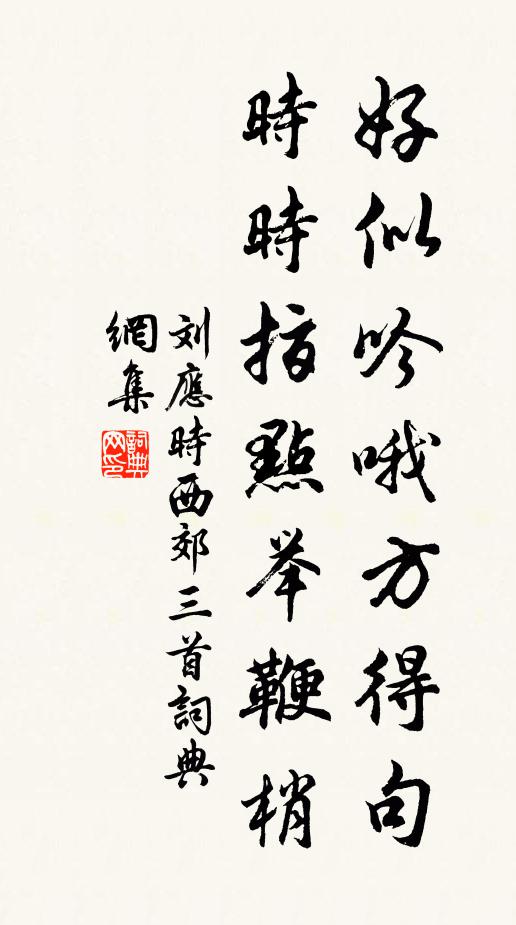 好似吟哦方得句
時時指點举鞭梢
刘應時西郊三首詞典
網集
詞典网印